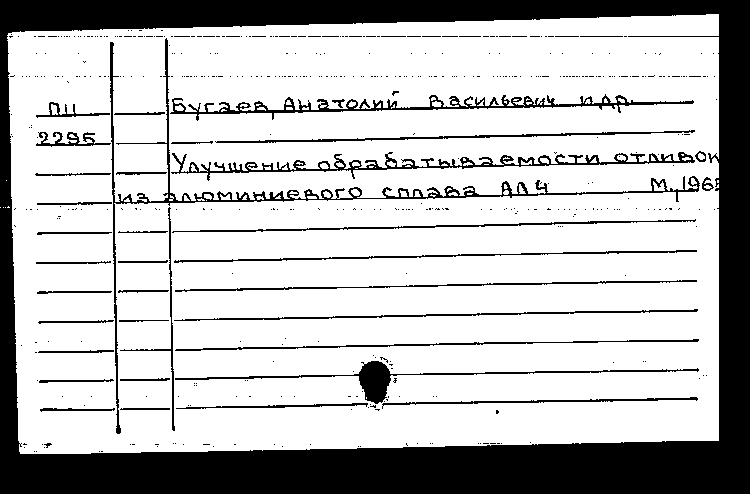 ПЦ Бугаев, Анатолий Васильевич и др.
2295
Улучшение обрабатываемости отливок
из алюминиевого сплава АЛ4 М.,